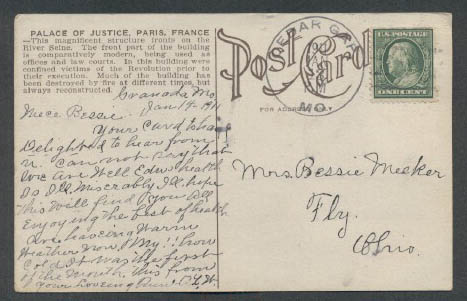 PALACE OF JUSTICE, PARIS, FRANCE
—This magnificent structure fronts on the
River Seine. The front part of the building
is comparatively modern, being used as
offices and law courts. In this building were
confined victims of the Revolution prior to
their execution. Much of the building has
been destroyed by fire at different times, but
always reconstructed.
Post Card
FOR ADDRESS ONLY
CEDAR GAP
MO.
U.S. POSTAGE
ONE CENT
Granada Mo.
Jan 14 - 1911
Niece Bessie.
Your Card to hand
Delighted to hear from
U. Can not say that
We Are Well Edw health
Is Ill. Miserably Ill. hope
This Will find you All
Enjoying the best of health
Are haveing Warm
Weather Now. & My!! how
Cold It Was the first
of the Month. this from
your Loveing Aunt
Mrs. Bessie Meeker
Fly.
Ohio.